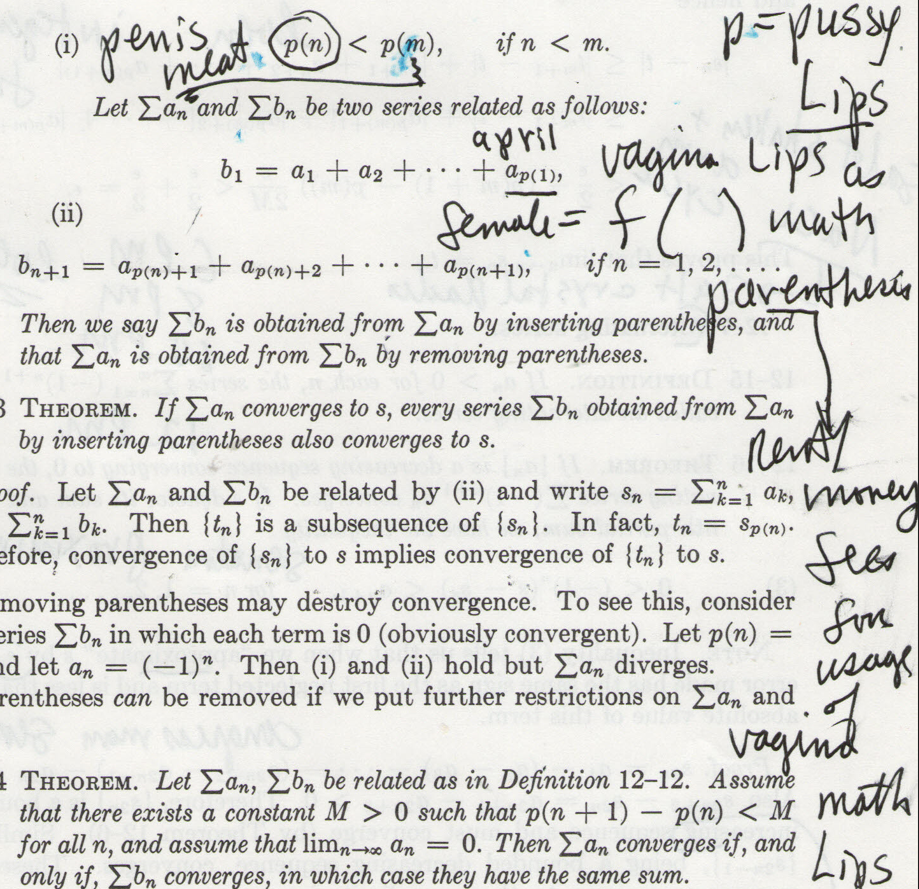 penis meat
(i) p(n) < p(m), if n < m.
p = pussy
Lips
Let ∑aₙ and ∑bₙ be two series related as follows:
april
b₁ = a₁ + a₂ + · · · + a_{p(1)},
vagina Lips as
(ii)
female = f ( ) math
b_{n+1} = a_{p(n)+1} + a_{p(n)+2} + · · · + a_{p(n+1)}, if n = 1, 2, . . . .
parenthesis
Then we say ∑bₙ is obtained from ∑aₙ by inserting parentheses, and
that ∑aₙ is obtained from ∑bₙ by removing parentheses.
3 THEOREM. If ∑aₙ converges to s, every series ∑bₙ obtained from ∑aₙ
by inserting parentheses also converges to s.
oof. Let ∑aₙ and ∑bₙ be related by (ii) and write sₙ = ∑ⁿₖ₌₁ aₖ,
money
∑ⁿₖ₌₁ bₖ. Then {tₙ} is a subsequence of {sₙ}. In fact, tₙ = s_{p(n)}.
efore, convergence of {sₙ} to s implies convergence of {tₙ} to s.
fees
moving parentheses may destroy convergence. To see this, consider
for
eries ∑bₙ in which each term is 0 (obviously convergent). Let p(n) =
nd let aₙ = (−1)ⁿ. Then (i) and (ii) hold but ∑aₙ diverges.
usage
rentheses can be removed if we put further restrictions on ∑aₙ and
of
vagina
4 THEOREM. Let ∑aₙ, ∑bₙ be related as in Definition 12–12. Assume
math
that there exists a constant M > 0 such that p(n + 1) − p(n) < M
for all n, and assume that lim_{n→∞} aₙ = 0. Then ∑aₙ converges if, and
only if, ∑bₙ converges, in which case they have the same sum.
Lips